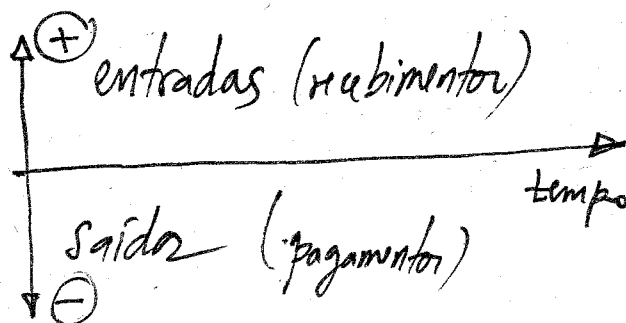 +
entradas (recebimentos)
tempo
saídas (pagamentos)
−